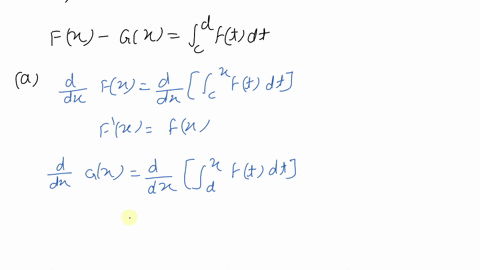 F(x) - G(x) = ∫_c^d f(t) dt
(a) d/dx F(x) = d/dx [∫_c^x f(t) dt]
F'(x) = f(x)
d/dx G(x) = d/dx [∫_d^x f(t) dt]